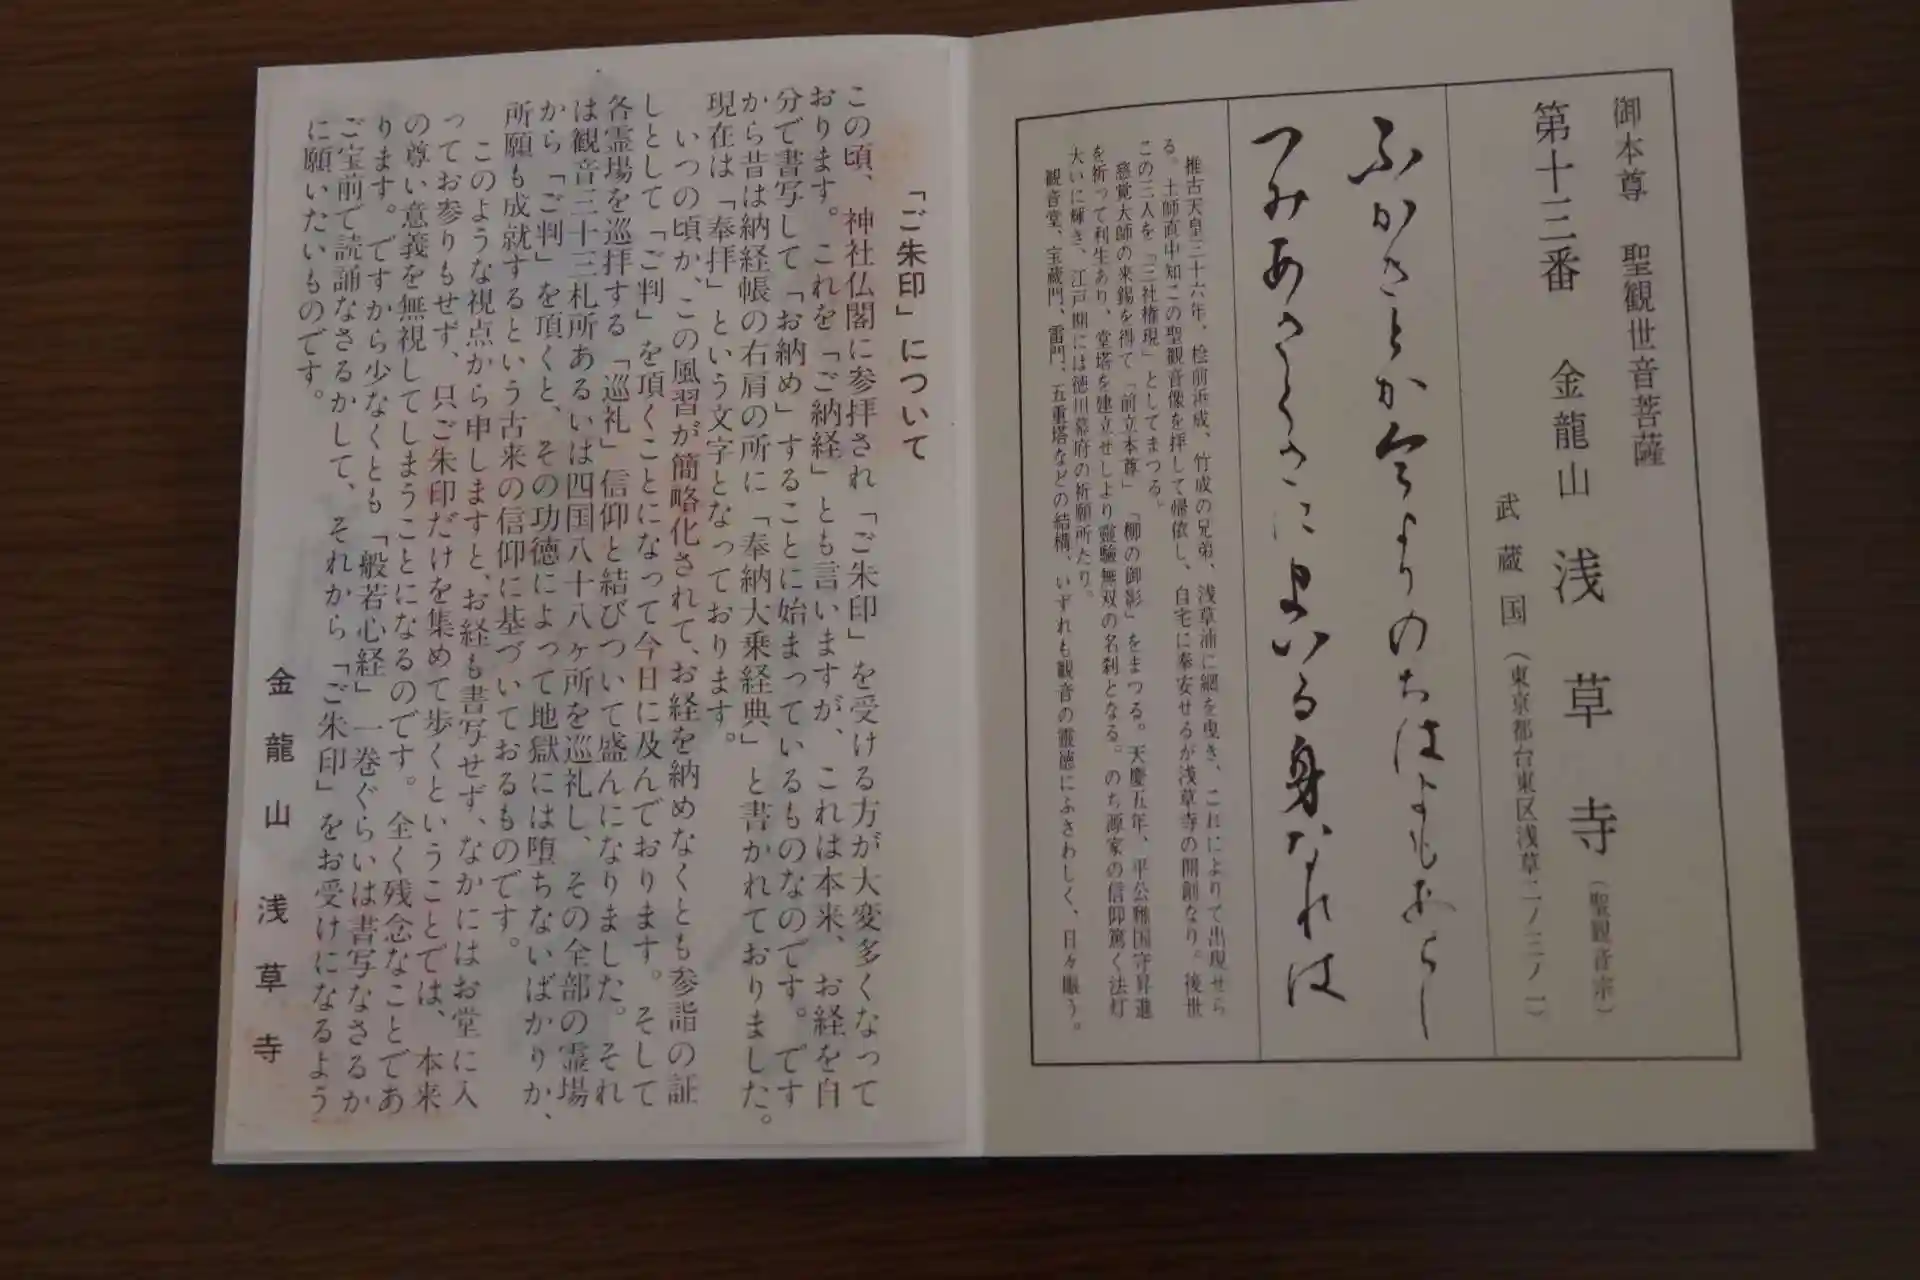 御本尊 聖観世音菩薩
第十三番 金龍山 浅草寺 (聖観音宗)
武蔵国 (東京都台東区浅草二ノ三ノ一)
ふかきとが今よりのちはよもあらし
つみあさくさにまいる身なれは
推古天皇三十六年、桧前浜成、竹成の兄弟、浅草浦に網を曳き、これによりて出現せら
る。土師直中知この聖観音像を拝して帰依し、自宅に奉安せるが浅草寺の開創なり。後世
この三人を「三社権現」としてまつる。
慈覚大師の来錫を得て「前立本尊」「柳の御影」をまつる。天慶五年、平公雅国守昇進
を祈って利生あり、堂塔を建立せしより霊験無双の名刹となる。のち源家の信仰篤く法灯
大いに輝き、江戸開には徳川幕府の祈願所たり。
観音堂、宝蔵門、雷門、五重塔などの結構、いずれも観音の霊徳にふさわしく、日々賑う。
「ご朱印」について
この頃、神社仏閣に参拝され「ご朱印」を受ける方が大変多くなって
おります。これを「ご納経」とも言いますが、これは本来、お経を自
分で書写して「お納め」することに始まっているものなのです。です
から昔は納経帳の右肩の所に「奉納大乗経典」と書かれておりました。
現在は「奉拝」という文字となっております。
いつの頃か、この風習が簡略化されて、お経を納めなくとも参詣の証
しとして「ご判」を頂くことになって今日に及んでおります。そして
各霊場を巡拝する「巡礼」信仰と結びついて盛んになりました。それ
は観音三十三札所あるいは四国八十八ヶ所を巡礼し、その全部の霊場
から「ご判」を頂くと、その功徳によって地獄には堕ちないばかりか、
所願も成就するという古来の信仰に基づいておるものです。
このような視点から申しますと、お経も書写せず、なかにはお堂に入
ってお参りもせず、只ご朱印だけを集めて歩くということでは、本来
の尊い意義を無視してしまうことになるのです。全く残念なことであ
ります。ですから少なくとも「般若心経」一巻ぐらいは書写なさるか
ご宝前で読誦なさるかして、それから「ご朱印」をお受けになるよう
に願いたいものです。
金龍山 浅草寺